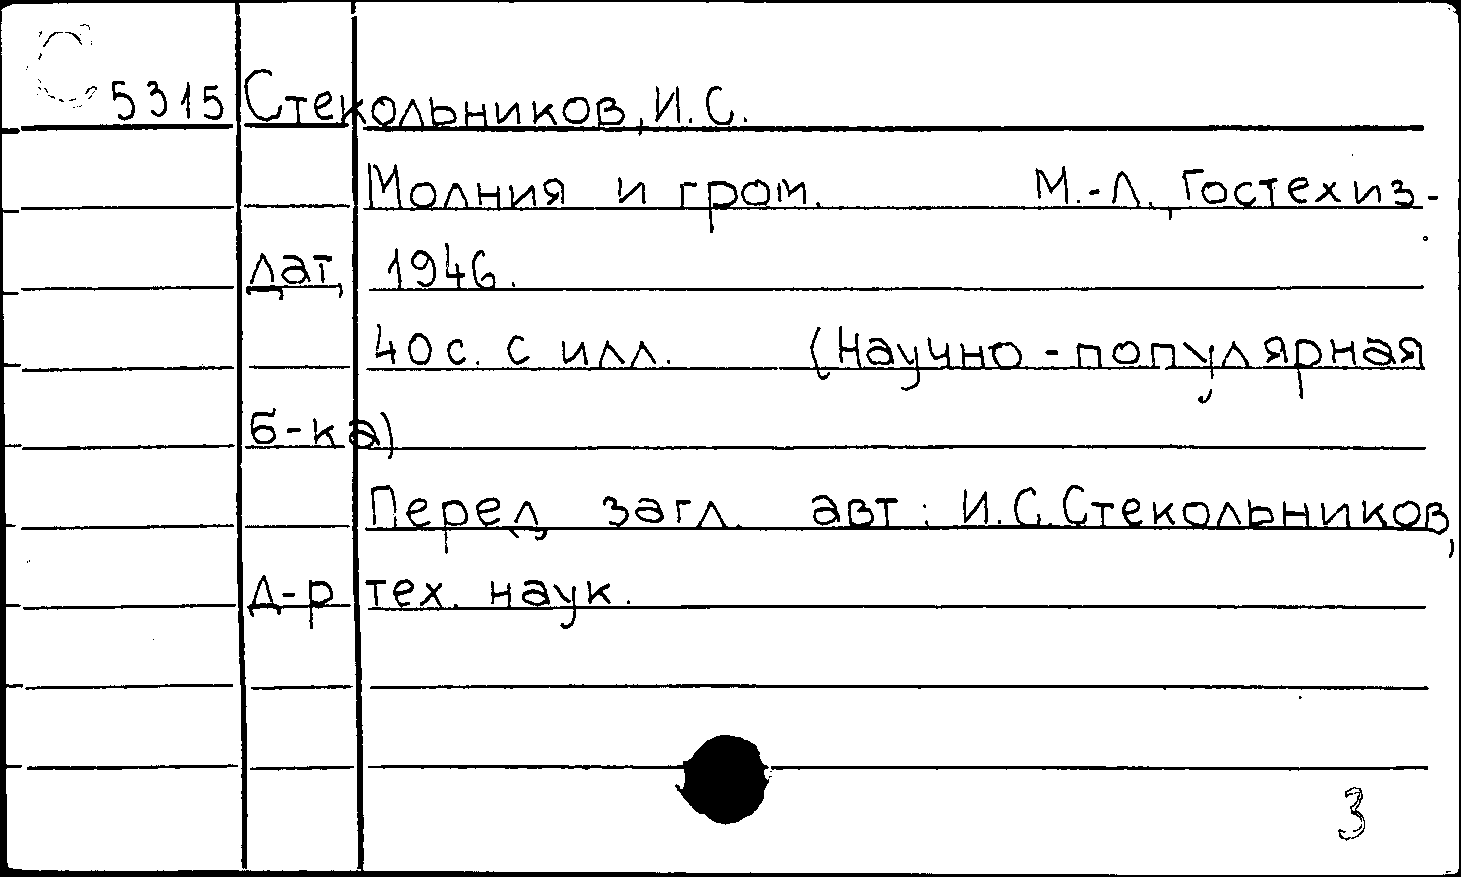 С 5315 Стекольников, И.С.
Молния и гром. М.-Л., Гостехиз-
дат, 1946.
40 с. с илл. (Научно-популярная
б-ка)
Перед загл. авт.: И.С. Стекольников,
д-р тех. наук.
3